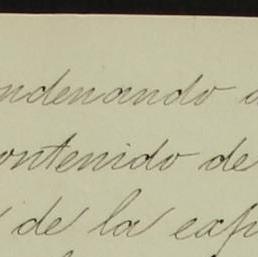 ndenando a
ontenido de
de la exp